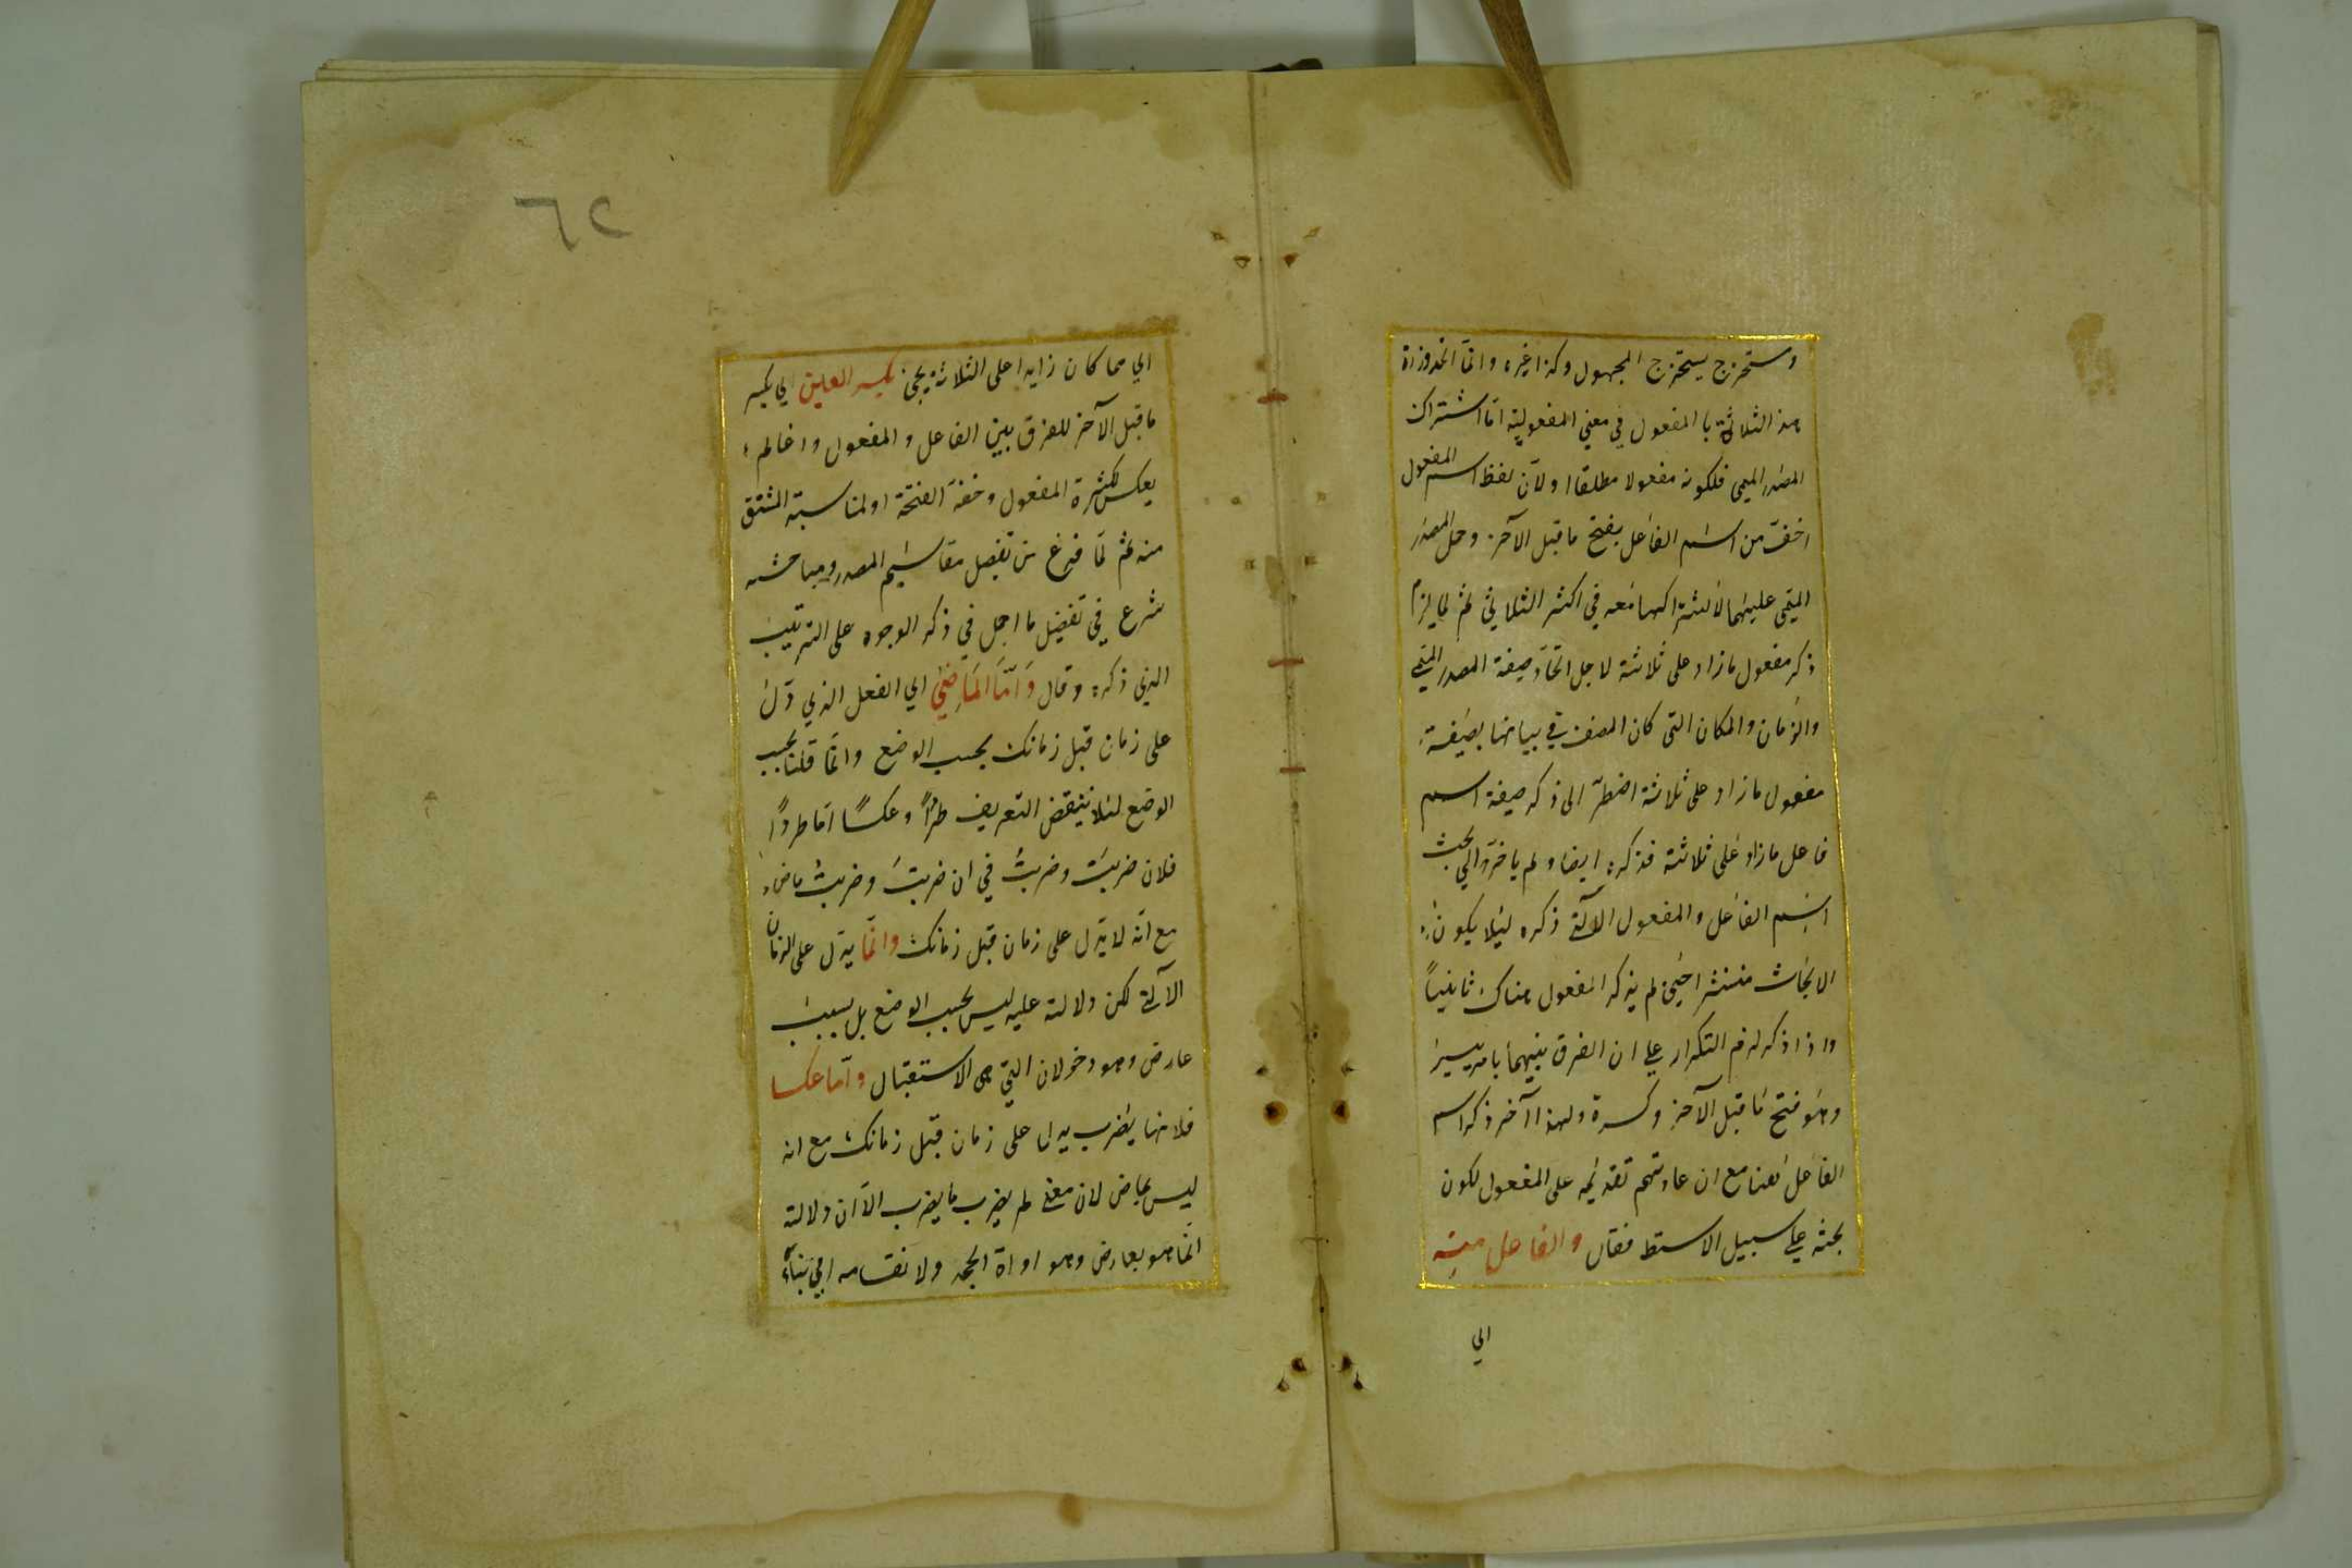 ومستخرج يستخرج المجهول وكذا غيره وانما اتحد وزان
هذه الثلاثة با المفعول في معني المفعولية اما اشتراك
المصدر الميمي فلكونه مفعولا مطلقا ولان لفظ اسم المفعول
اخف من اسم الفاعل بفتح ما قبل الآخر وحمل المصدر
الميمي عليهما لاشتراكهما معه في اكثر الثلاثي ثم لما لزم
ذكر مفعول ما زاد على ثلاثة لاجل اتحاد صيغة المصدر الميمي
والزمان والمكان التي كان المصنف في بيانها بصيغة
مفعول ما زاد على ثلاثة اضطر الى ذكر صيغة اسم
فاعل ما زاد على ثلاثة فذكره ايضا ولم ياخره الي بحث
اسم الفاعل والمفعول الآتي ذكره ليلا يكون
الابحاث منتشرا حتي لم يذكر المفعول هناك ثانياً
واذا ذكر لزم التكرار علي ان الفرق بينهما بامر يسير
وهو فتح ما قبل الآخر وكسرة ولهذا آخر ذكر اسم
الفاعل هنا مع ان عادتهم تقديمه على المفعول لكون
بحثه علي سبيل الاستط فقال والفاعل منه
الي
٦٢
الي مما كان زايدا على الثلاثة يجئ بكسر العين اي بكسر
ما قبل الآخر للفرق بين الفاعل والمفعول وانما لم
يعكس لكثرة المفعول وخفة الفتحة او لمناسبة المشتق
منه ثم لما فرغ من تفصيل مقاسيم المصدر ومباحثه
شرع في تفضيل ما اجمل في ذكر الوجوه على الترتيب
الذي ذكره وقال وَاَمَّا المَاضِي اي الفعل الذي دل
على زمان قبل زمانك بحسب الوضع وانما قلنا بحسب
الوضع لئلا ينتقض التعريف طرداً وعكساً اما طرداً
فلان ضربتَ وضربتُ في ان ضربتَ وضربتُ ماض
مع انه لا يدل على زمان قبل زمانك وانما يدل على الزمان
الآتي لكن دلالته عليه ليس بحسب الوضع بل بسبب
عارض وهو دخول ان التي هي الاستقبال واما عكسا
فلانها يضرب يدل على زمان قبل زمانك مع انه
ليس بماض لان معني لم يضرب ما يضرب الا ان دلالته
انما هو بعارض وهو اداة الجحد ولانقسامه الي بناء